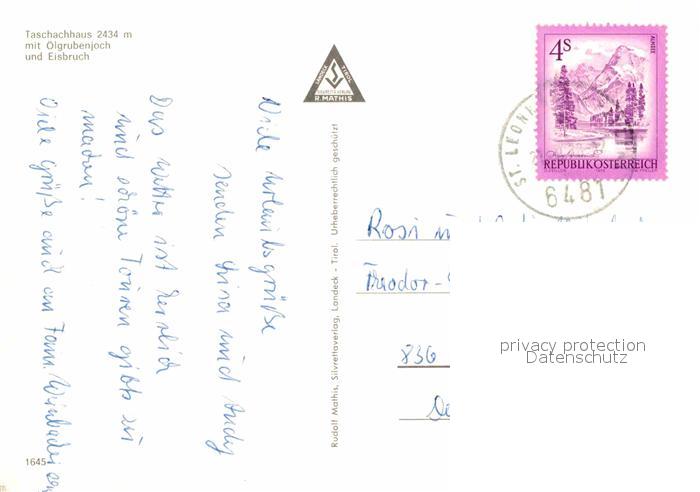 Taschachhaus 2434 m
mit Ölgrubenjoch
und Eisbruch
LANDECK TIROL
SILVRETTAVERLAG
R. MATHIS
4S
ALMSEE
REPUBLIK ÖSTERREICH
ST. LEON
6481
Viele Urlaubsgrüße
senden und Andy
Das Wetter ist herrlich
und schöne Touren gibts zu
machen!
Viele Grüße auch an Fam.
Rudolf Mathis, Silvrettaverlag, Landeck - Tirol. Urheberrechtlich geschützt
Rosi
Theodor-
836
De
privacy protection
Datenschutz
1645